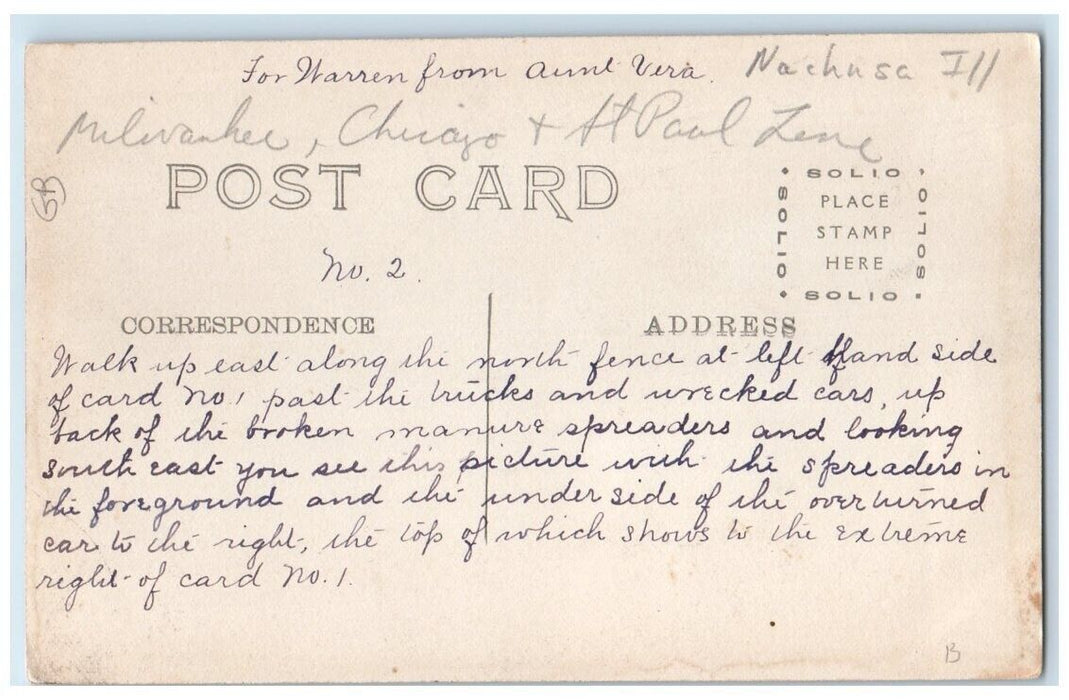 For Warren from Aunt Vera. Nachusa Ill
Milwaukee, Chicago + St Paul Line
GB
POST CARD
SOLIO
SOLIO
SOLIO
SOLIO
PLACE
STAMP
HERE
No. 2.
CORRESPONDENCE
ADDRESS
Walk up east along the north fence at left Hand side
of card No 1 past the trucks and wrecked cars, up
back of the broken manure spreaders and looking
south east you see this picture with the spreaders in
the foreground and the under side of the over turned
car to the right, the top of which shows to the extreme
right of card No. 1.
B